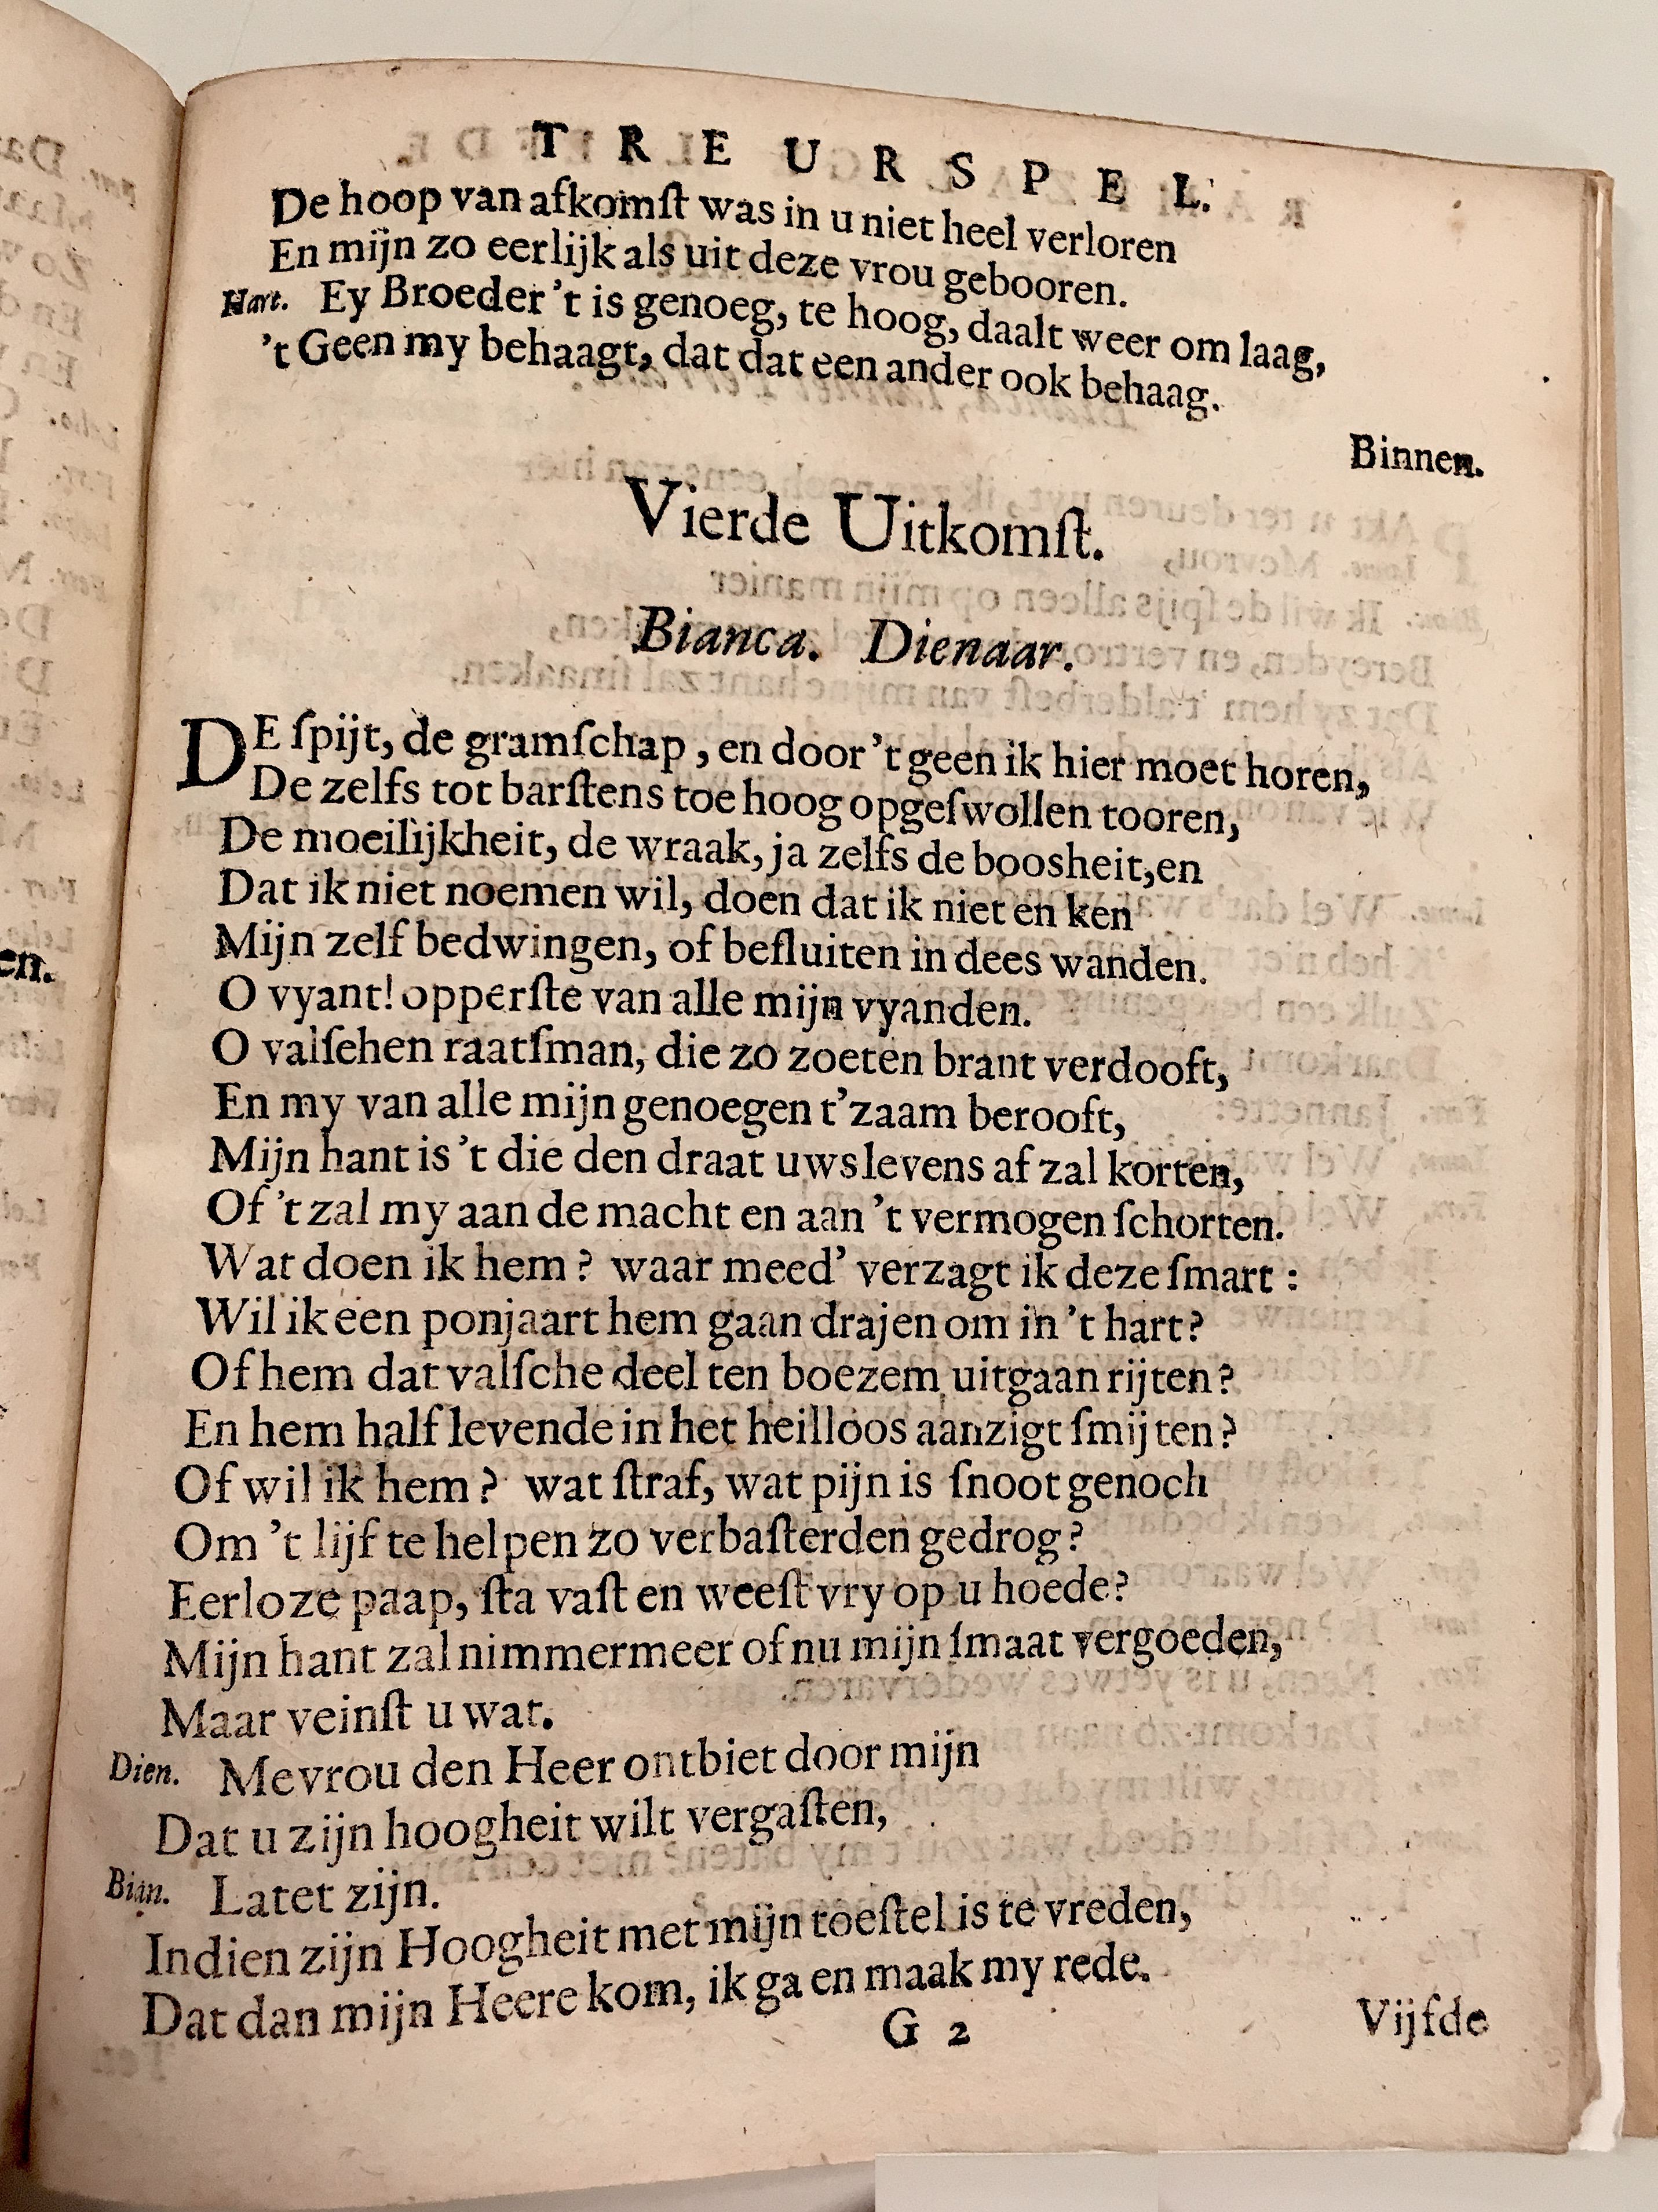 TREURSPEL.
De hoop van afkomſt was in u niet heel verloren
En mijn zo eerlijk als uit deze vrou gebooren.
Hart. Ey Broeder 't is genoeg, te hoog, daalt weer om laag,
't Geen my behaagt, dat dat een ander ook behaag.
Binnen.
Vierde Uitkomſt.
Bianca. Dienaar.
DE ſpijt, de gramſchap, en door 't geen ik hier moet horen,
De zelfs tot barſtens toe hoog opgeſwollen tooren,
De moeilijkheit, de wraak, ja zelfs de boosheit, en
Dat ik niet noemen wil, doen dat ik niet en ken
Mijn zelf bedwingen, of beſluiten in dees wanden.
O vyant! opperſte van alle mijn vyanden.
O valſehen raatſman, die zo zoeten brant verdooft,
En my van alle mijn genoegen t'zaam berooft,
Mijn hant is 't die den draat uws levens af zal korten,
Of 't zal my aan de macht en aan 't vermogen ſchorten.
Wat doen ik hem? waar meed' verzagt ik deze ſmart:
Wil ik een ponjaart hem gaan drajen om in 't hart?
Of hem dat valſche deel ten boezem uitgaan rijten?
En hem half levende in het heilloos aanzigt ſmijten?
Of wil ik hem? wat ſtraf, wat pijn is ſnoot genoch
Om 't lijf te helpen zo verbaſterden gedrog?
Eerloze paap, ſta vaſt en weeſt vry op u hoede?
Mijn hant zal nimmermeer of nu mijn ſmaat vergoeden,
Maar veinſt u wat.
Dien. Mevrou den Heer ontbiet door mijn
Dat u zijn hoogheit wilt vergaſten,
Bian. Latet zijn.
Indien zijn Hoogheit met mijn toeſtel is te vreden,
Dat dan mijn Heere kom, ik ga en maak my rede.
G 2
Vijfde